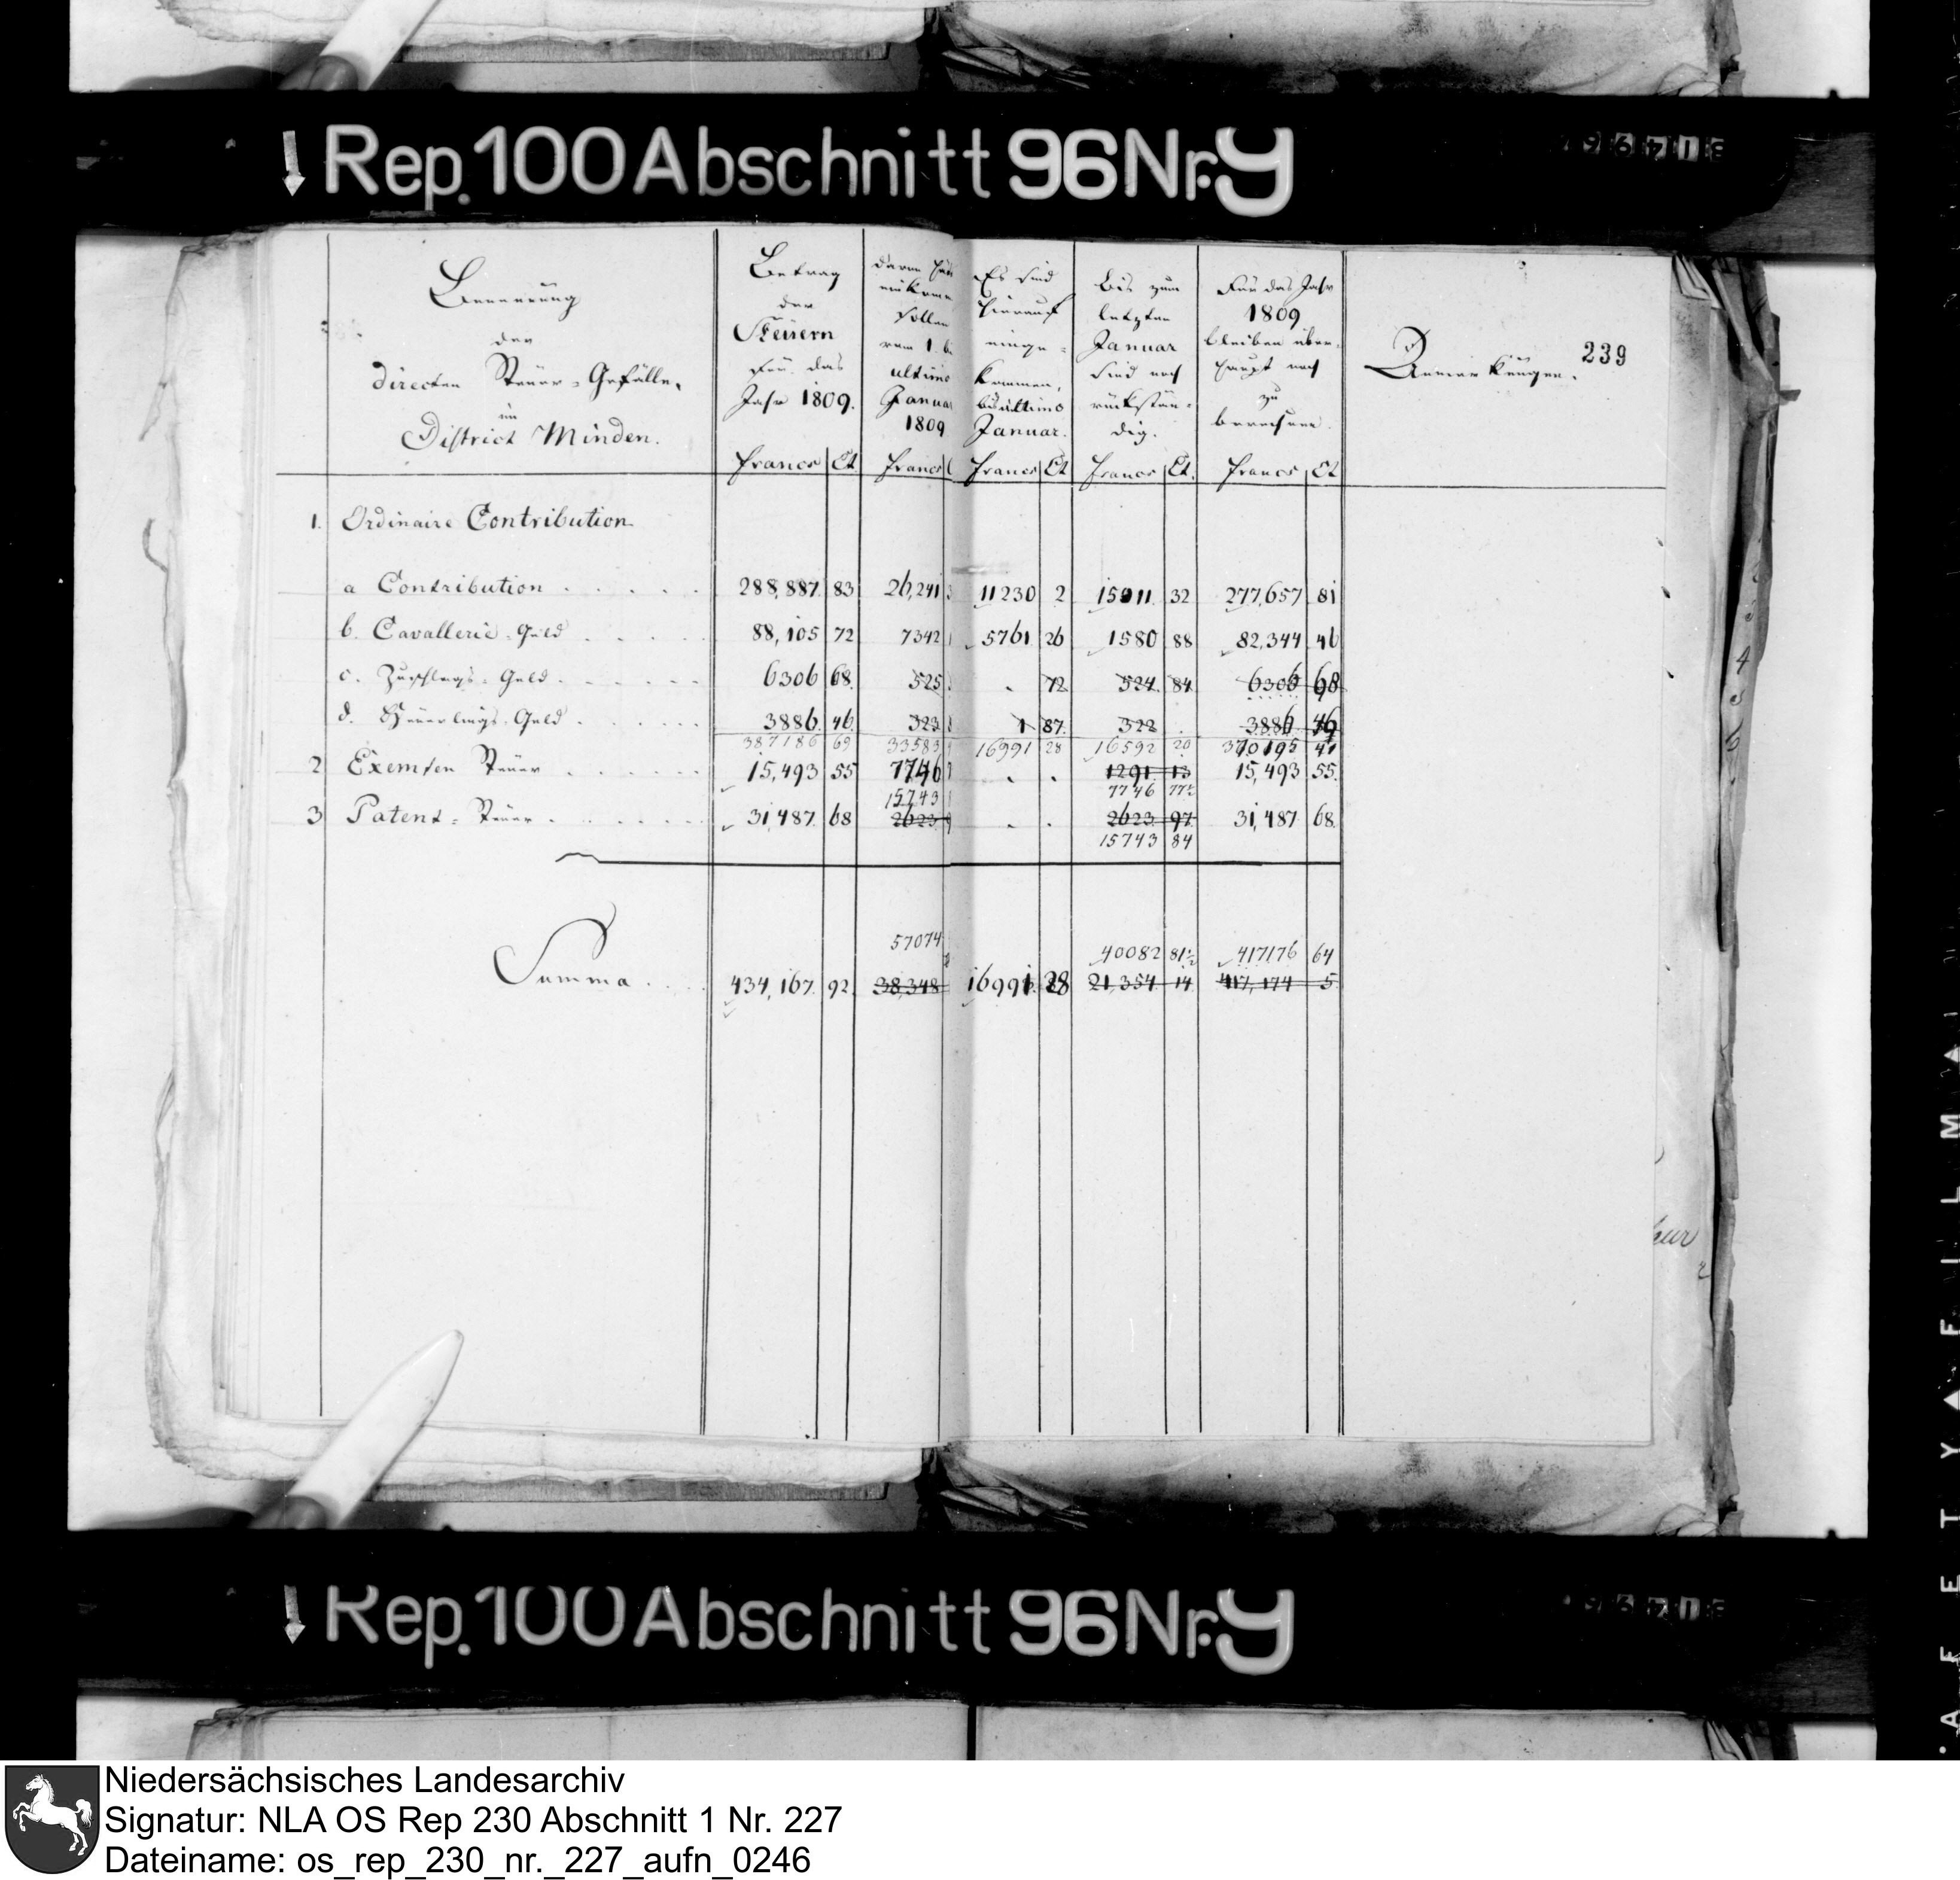 Rep. 100 Abschnitt 96 Nr. 9
239
Benennung
der
directen Steuer-Gefälle,
im
District Minden.
Betrag
der
Steuern
für das
Jahr 1809.
francs Ct.
davon
einkom
sollen
vom 1. b
ultimo
Janua
1809
francs
Es sind
hierauf
einge-
kommen,
bis ultimo
Januar.
francs Ct
bis zum
letzten
Januar
sind noch
rückstän-
dig.
francs Ct.
Für das Jahr
1809
bleiben über-
haupt noch
zu
berechnen.
francs Ct
Anmerkungen.
1. Ordinaire Contribution
a Contribution 288,887. 83 26,241 11230 2 15011. 32 277,657 81
b. Cavallerie-Geld 88,105 72 7342 5761 26 1580 88 82,344 46
c. Zuschlags-Geld 6306 68. 525 . 72 524. 84 6306 68
d. Heuerlings-Geld 3886. 46. 323 1 87. 322 . 3886 46
387186 69 33583 16991 28 16592 20 370195 41
2 Exemten Steuer 15,493 55 7746 . . 1291. 13 15,493 55.
7746 77½
15743
3 Patent-Steuer 31,487. 68 2623 . . 2623 97. 31,487 68.
15743 84
57074 40082 81½ 417176 64
Summa 434,167. 92. 38,348 16991 28 21,354 14 417,174 5
Rep. 100 Abschnitt 96 Nr. 9
SAFETY FILM
Niedersächsisches Landesarchiv
Signatur: NLA OS Rep 230 Abschnitt 1 Nr. 227
Dateiname: os_rep_230_nr._227_aufn_0246